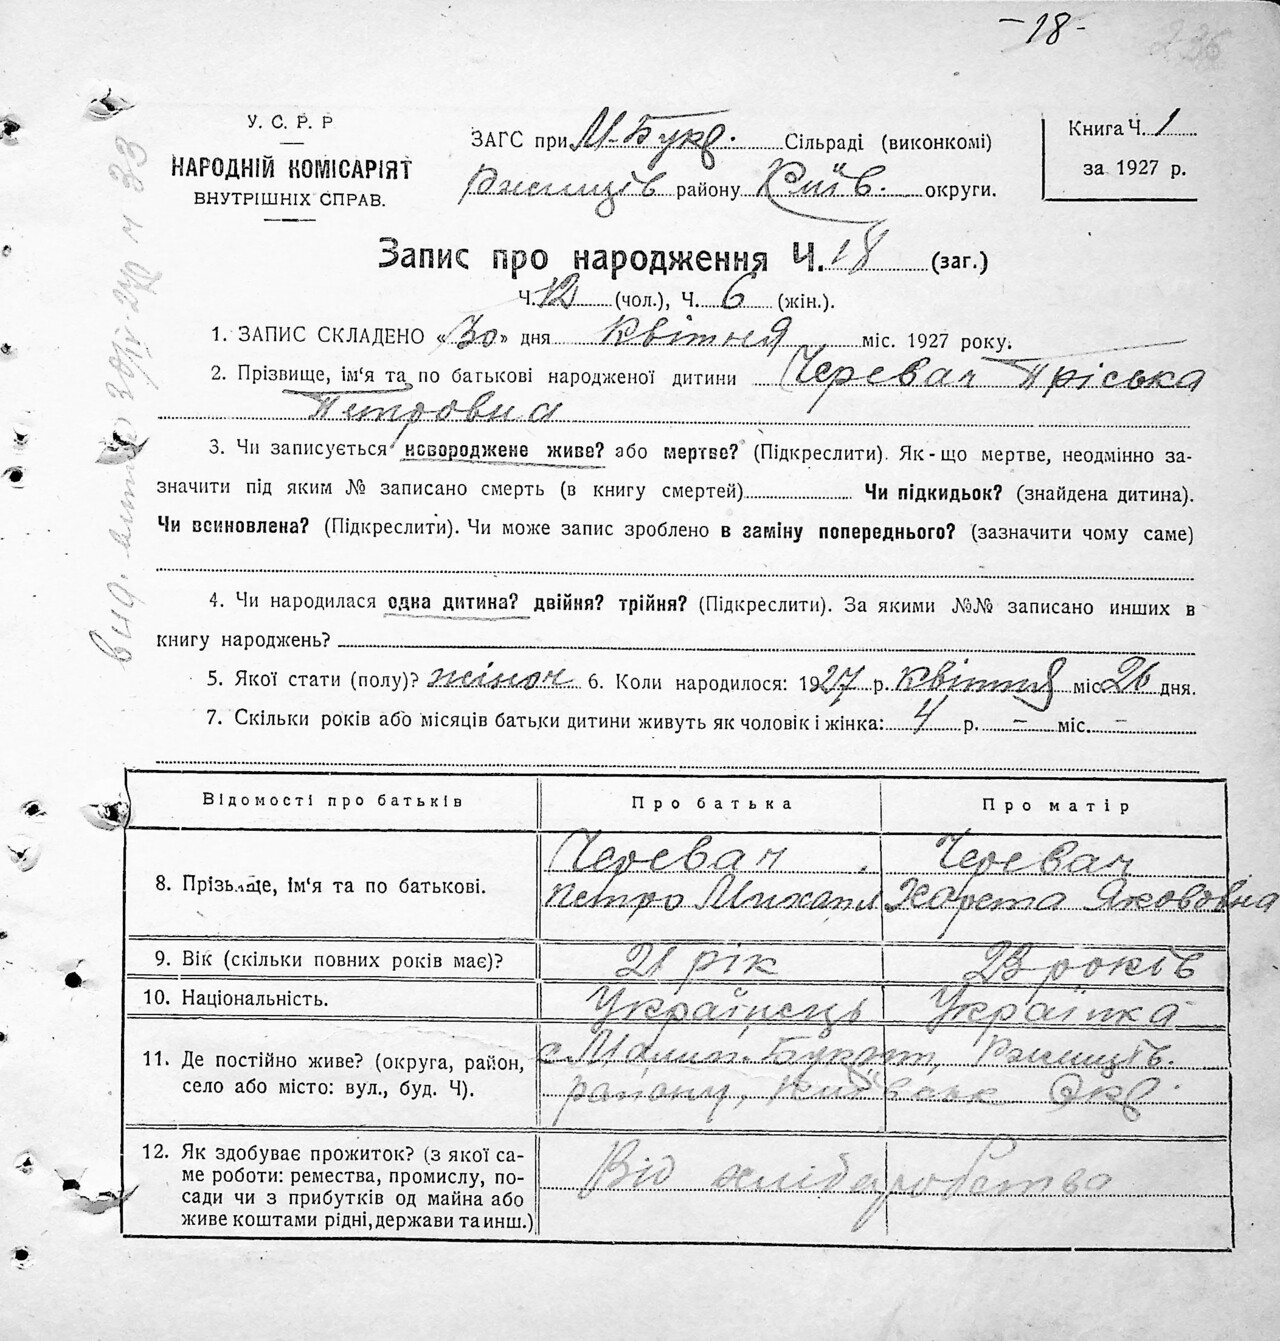 -18-
236
У. С. Р. Р
НАРОДНІЙ КОМІСАРІЯТ
ВНУТРІШНІХ СПРАВ.
ЗАГС при М-Букр. Сільраді (виконкомі)
Ржищів району Київ. округи.
Книга Ч. 1
за 1927 р.
Запис про народження Ч. 18 (заг.)
Ч. 12 (чол.), Ч. 6 (жін.).
1. ЗАПИС СКЛАДЕНО «30» дня Квітня міс. 1927 року.
2. Прізвище, ім'я та по батькові народженої дитини Черевач Пріська
Петровна
3. Чи записується новороджене живе? або мертве? (Підкреслити). Як-що мертве, неодмінно за-
значити під яким № записано смерть (в книгу смертей) Чи підкидьок? (знайдена дитина).
Чи всиновлена? (Підкреслити). Чи може запис зроблено в заміну попереднього? (зазначити чому саме)
4. Чи народилася одна дитина? двійня? трійня? (Підкреслити). За якими №№ записано инших в
книгу народжень?
5. Якої стати (полу)? жіноч 6. Коли народилося: 1927 р. квітня міс 26 дня.
7. Скільки років або місяців батьки дитини живуть як чоловік і жінка: 4 р. – міс. –
Відомості про батьків Про батька Про матір
8. Прізьвище, ім'я та по батькові. Черевач Петро Михайл Черевач Якововна
9. Вік (скільки повних років має)? 21 рік 23 років
10. Національність. Українець Українка
11. Де постійно живе? (округа, район, с. Малип. Букрин, Ржищів.
село або місто: вул., буд. Ч). району, Київськ Окр.
12. Як здобуває прожиток? (з якої са-
ме роботи: ремества, промислу, по-
сади чи з прибутків од майна або
живе коштами рідні, держави та инш.) Від хліборобства